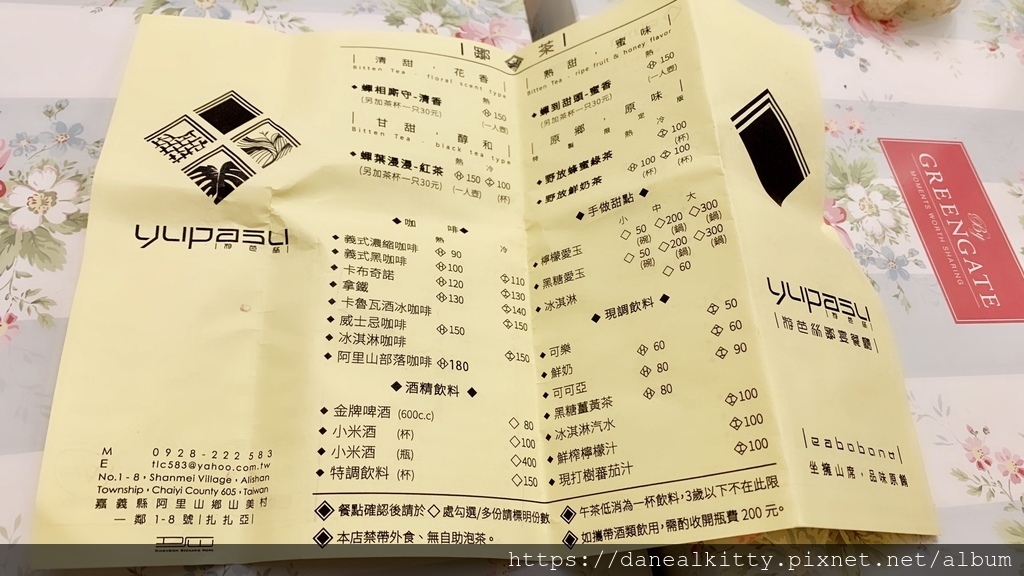 yupasu
M 0928-222 583
E tlc583@yahoo.com.tw
No.1-8, Shanmei Village, Alishan
Township, Chaiyi County 605, Taiwan
嘉義縣阿里山鄉山美村
一鄰1-8號|扎扎亞|
清甜，花香
Bitten Tea . floral scent type
蟬相廝守-清香 熱 150
(另加茶杯一只30元) (一人壺)
甘甜，醇和
Bitten Tea . black tea type
蟬葉漫漫-紅茶 熱 150 冷 100
(另加茶杯一只30元) (一人壺) (杯)
咖啡
熱 冷
義式濃縮咖啡 90
義式黑咖啡 100 110
卡布奇諾 120 130
拿鐵 130 140
卡魯瓦酒冰咖啡 150
威士忌咖啡 150
冰淇淋咖啡 150
阿里山部落咖啡 180
酒精飲料
金牌啤酒 (600c.c) 80
小米酒 (杯) 100
小米酒 (瓶) 400
特調飲料 (杯) 150
餐點確認後請於◇處勾選/多份請標明份數
本店禁帶外食、無自助泡茶。
茶
熟甜，蜜味
Bitten Tea . ripe fruit & honey flavor
蟬到甜頭-蜜香 熱 150
(另加茶杯一只30元) (一人壺)
原鄉，原味
特製 推定版
熱 冷
野放蜂蜜綠茶 100 (杯)
野放鮮奶茶 100 100 (杯) (杯)
手做甜點
小 中 大
檸檬愛玉 50 (碗) 200 (鍋) 300 (鍋)
黑糖愛玉 50 (碗) 200 (鍋) 300 (鍋)
冰淇淋 60
現調飲料
可樂 50
鮮奶 60 60
可可亞 80 90
黑糖薑黃茶 80
冰淇淋汽水 100
鮮榨檸檬汁 100
現打樹番茄汁 100
午茶低消為一杯飲料，3歲以下不在此限
如攜帶酒類飲用，需酌收開瓶費 200 元。
yupasu
eabobona
坐擁山席，品味原饌
By
GREENGATE
MOMENTS WORTH SHARING
https://danealkitty.pixnet.net/album